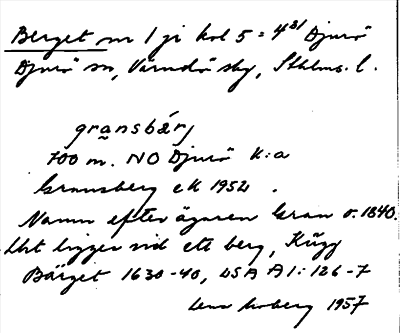 Berget nr 1 på kol 5 = 4²¹ Djurö
Djurö sn, Värmdö sby, Sthlms. l.
gransbärj
700 m. NO Djurö k:a
Gransberg ek 1952.
Namn efter ägaren Gran o. 1840.
Lht ligger vid ett berg,
Bärget 1630-40, LSA A 1: 126-7
1957